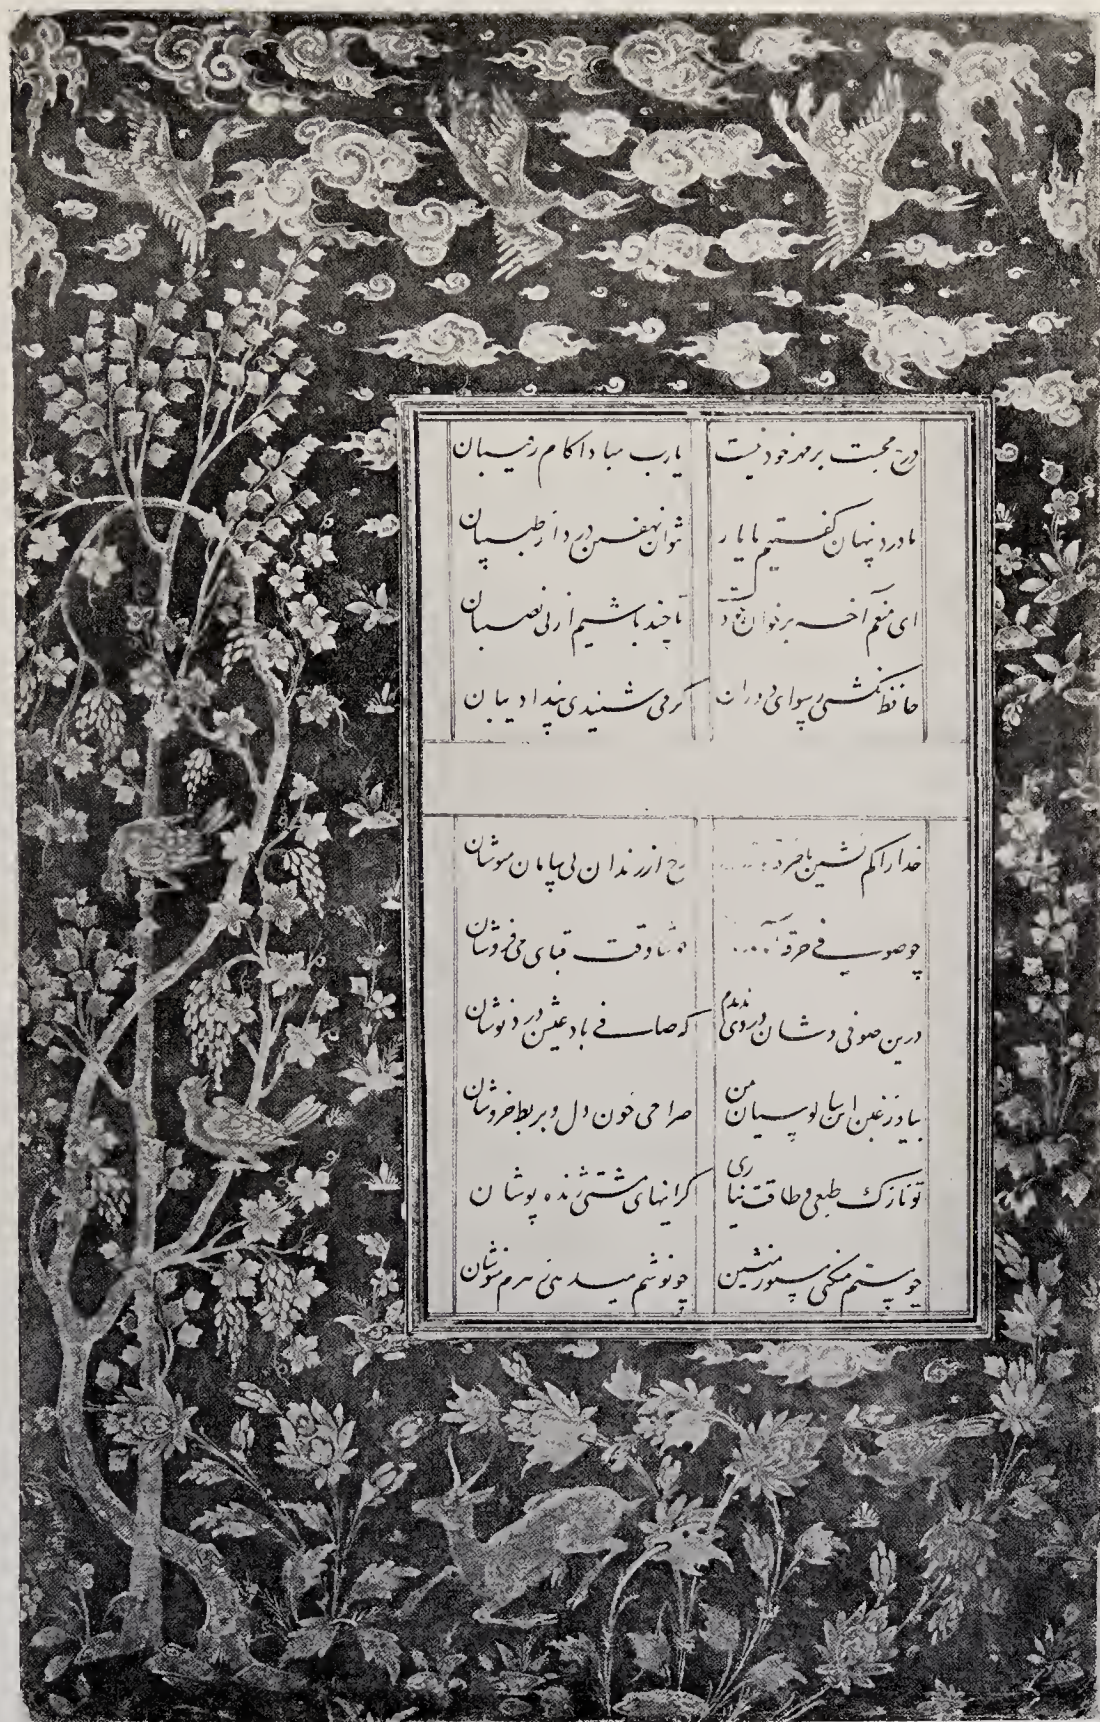 درج محبت بر مهر خود نیست یارب مبادا کام رقیبان
ما درد پنهان گفتیم با یار نتوان نهفتن درد از طبیبان
ای منعم آخر بر خوان جودت تا چند باشیم از بی نصیبان
حافظ نگشتی رسوای دوران گر می شنیدی پند ادیبان
خدا را کم نشین با خرقه رخ از رندان بی سامان مپوشان
چو صوفی خرقه خوشا وقت قبای می فروشان
درین صوفی وشان دردی ندیدم که صافی باد عیش درد نوشان
بیا وز غبن این سالوسیان من صراحی خون دل و بربط خروشان
تو نازک طبعی و طاقت نیاری گرانیهای مشتی ژنده پوشان
چو مستم مستور منشین چو نوشم میدهی زهرم منوشان